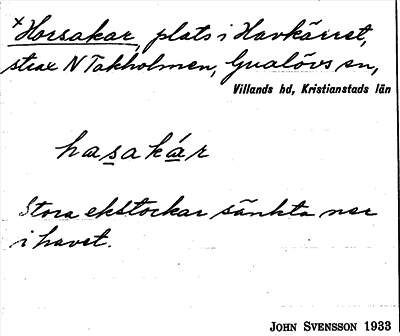 ×Horsakar, plats i Havkärret,
strax N Takholmen, Gualövs sn,
Villands hd, Kristianstads län
hasakár
Stora ekstockar sänkta ner
i havet.
JOHN SVENSSON 1933